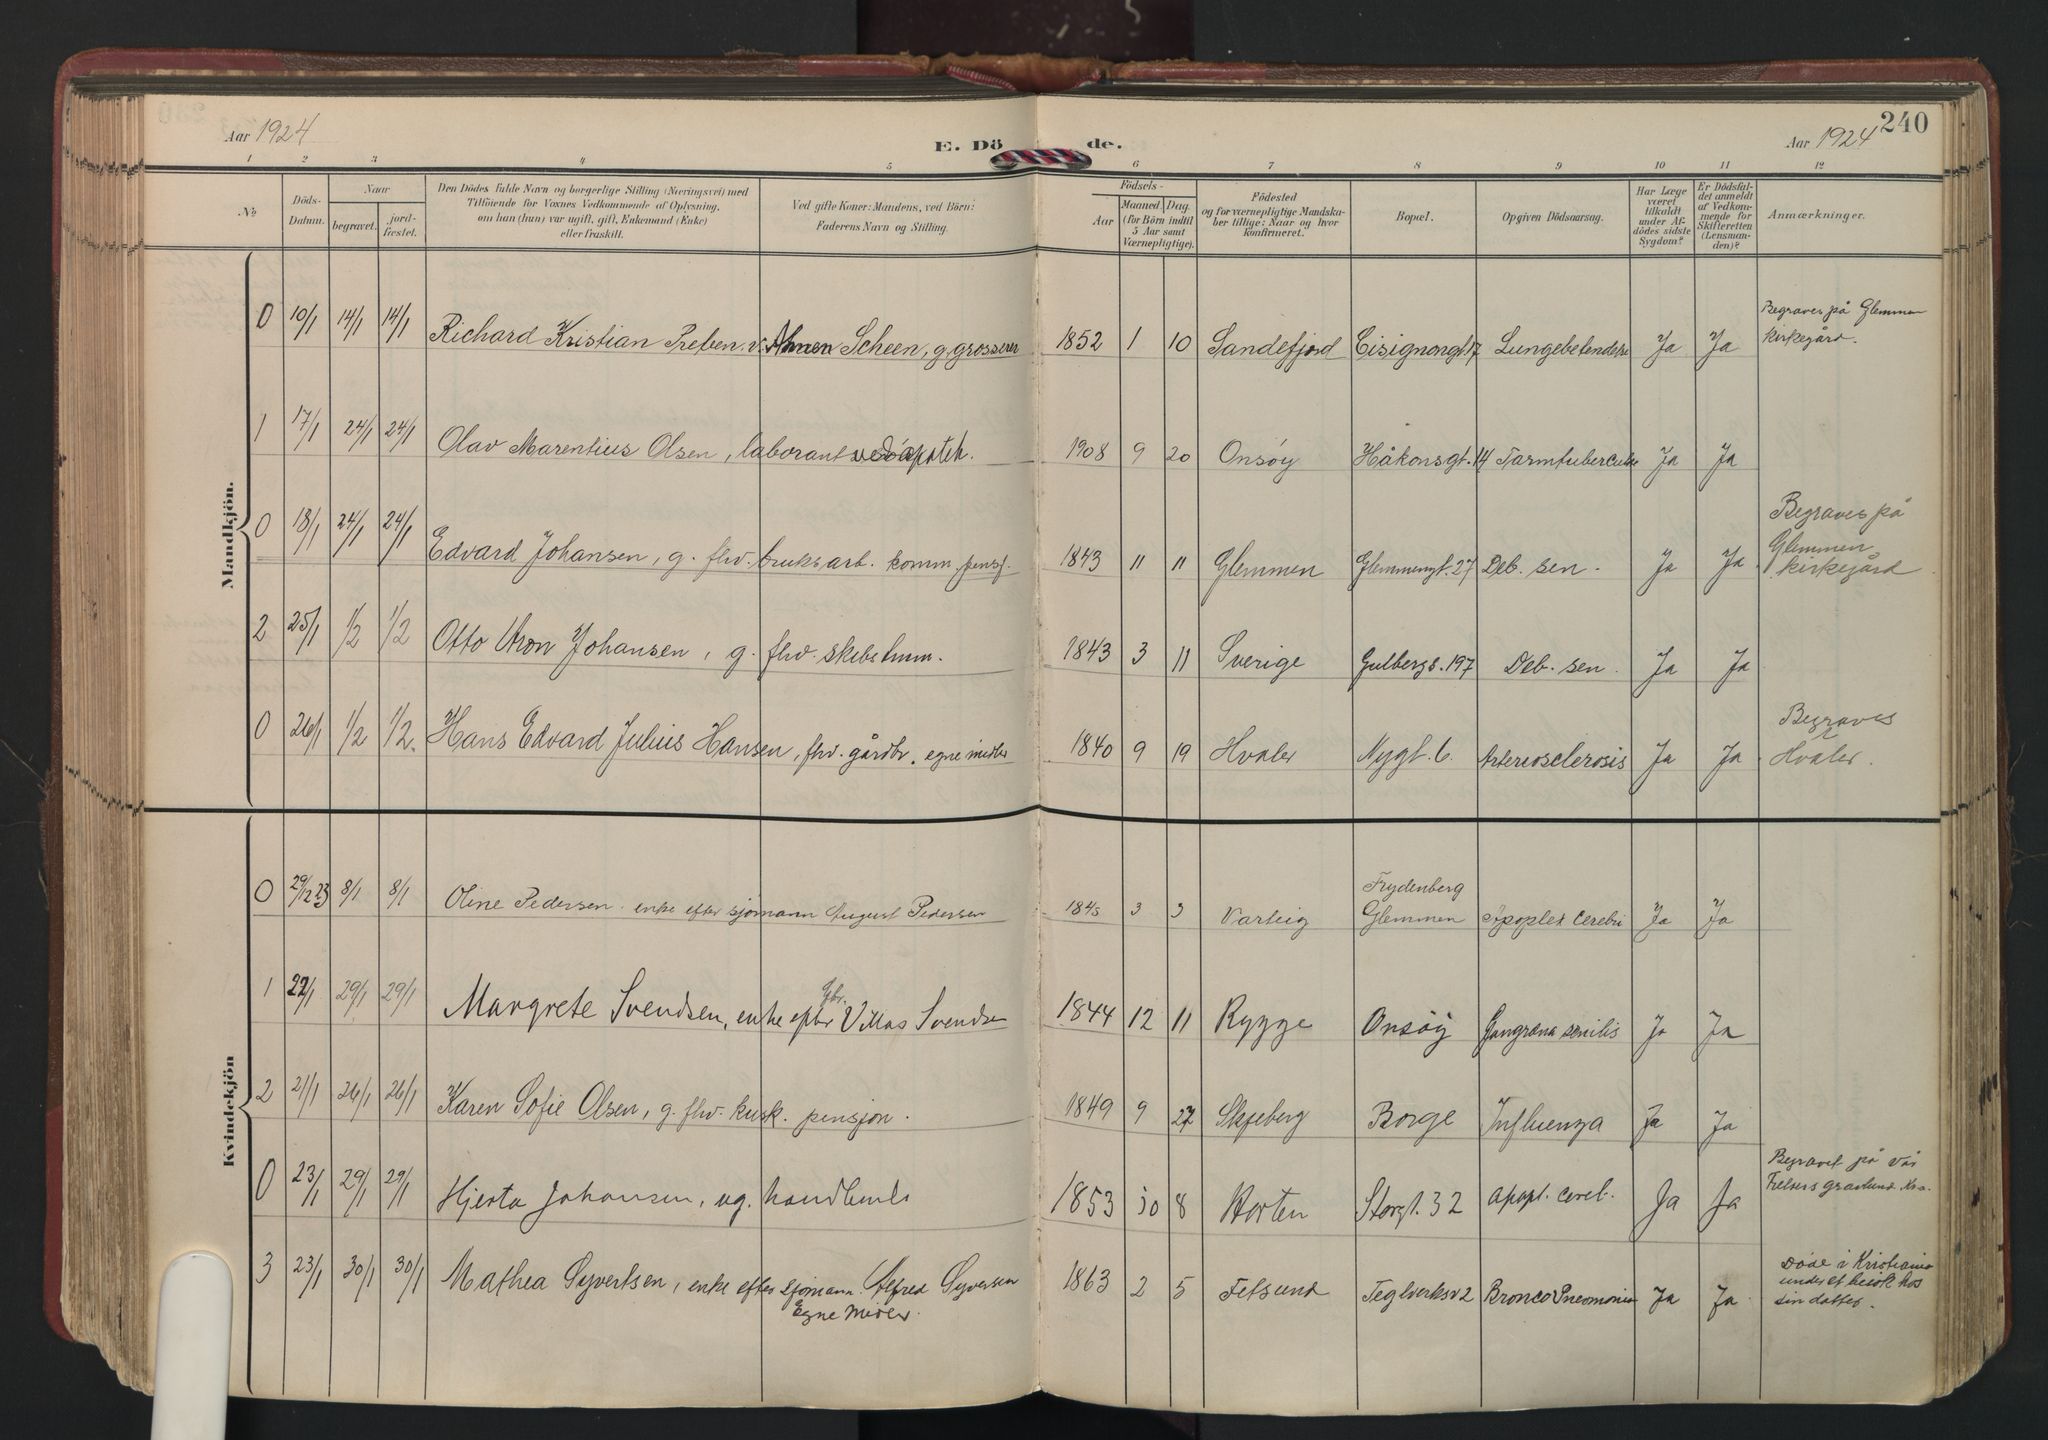 240
Aar 1924
E. Dö de.
Aar 1924
1 2 3 4 5 6 7 8 9 10 11 12
№
Döds-Datum.
Naar
begravet.
jord-fæstet.
Den Dödes fulde Navn og borgerlige Stilling (Næringsvei) med
Tilföiende for Voxnes Vedkommende af Oplysning,
om han (hun) var ugift, gift, Enkemand (Enke)
eller fraskilt.
Ved gifte Koner: Mandens, ved Börn:
Faderens Navn og Stilling.
Födsels-
Aar
Maaned Dag.
(for Börn indtil
5 Aar samt
Værnepligtige).
Födested
og for værnepligtige Mandska-
ber tillige: Naar og hvor
konfirmeret.
Bopæl.
Opgiven Dödsaarsag.
Har Læge
været
tilkaldt
under Af-
dödes sidste
Sygdom?
Er Dödsfal-
det anmeldt
af Vedkom-
mende for
Skifteretten
(Lensman-
den)?
Anmærkninger.
Mandkjön.
0 10/1 14/1 14/1 Richard Kristian Preben v. Ahnen Scheen, g. grosserer 1852 1 10 Sandefjord Cisignongt. 17 Lungebetendelse Ja Ja Begraves på Glemmen
kirkegård.
1 17/1 24/1 24/1 Olav Marentius Olsen, laborant ved apotek. 1908 9 20 Onsøy Håkonsgt. 14 Tarmtuberculose Ja Ja
0 18/1 24/1 24/1 Edvard Johansen, g. fhv. bruksarb. komm. pensj. 1843 11 11 Glemmen Glemmengt. 27 Deb. sen. Ja Ja Begraves på
Glemmen
kirkegård
2 25/1 1/2 1/2 Otto Aron Johansen, g. fhv. skibstmm. 1843 3 11 Sverige Gulbergs. 197 Deb. sen. Ja Ja
0 26/1 1/2 1/2. Hans Edvard Julius Hansen, fhv. gårdbr. egne midler 1840 9 19 Hvaler Nygt. 6. Arteriosclerosis Ja Ja Begraves
Hvaler.
Kvindekjön
0 29/12 23 8/1 8/1 Oline Pedersen enke efter sjømann August Pedersen 1845 3 3 Varteig Frydenberg
Glemmen Apoplex cerebri Ja Ja
1 22/1 29/1 29/1 Margrete Svendsen, enke efter Gbr. Villas Svendsen 1844 12 11 Rygge Onsøy Gangræna senilis Ja Ja
2 21/1 26/1 26/1 Karen Sofie Olsen, g. fhv. kusk. pensjon. 1849 9 27 Skjeberg Borge Influenza Ja Ja
0 23/1 29/1 29/1 Hjerta Johansen, ug. 1853 10 8 Horten Storgt. 32 apopl. cereb. Ja Ja Begravet på vår
Frelsers gravlund Kra.
3 23/1 30/1 30/1 Mathea Syvertsen, enke efter sjømann Alfred Syversen
Egne Midler. 1863 2 5 Fetsund Teglverksv 2 Bronco Pneomonia Ja Ja Døde i Kristiania
under et besøk hos
sin datter.